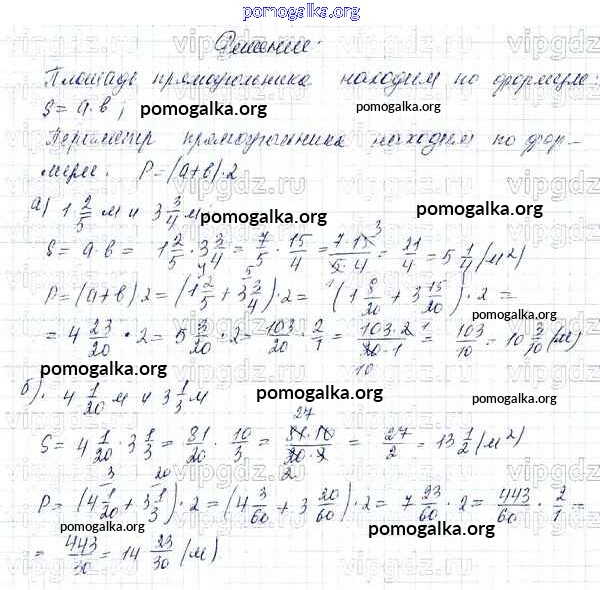 pomogalka.org
Решение:
Площадь прямоугольника находим по формуле:
S = a·b;
pomogalka.org
pomogalka.org
Периметр прямоугольника находим по фор-
муле. P = (a+b)·2
pomogalka.org
а) 1 2/5 м и 3 3/4 м
pomogalka.org
S = a·b = 1 2/5 · 3 3/4 = 7/5 · 15/4 = 7·15/5·4 = 21/4 = 5 1/4 (м²)
P = (a+b)2 = (1 2/5 + 3 3/4)·2 = (1 8/20 + 3 15/20)·2 =
= 4 23/20 · 2 = 5 3/20 · 2 = 103/20 · 2/1 = 103·2/20·1 = 103/10 = 10 3/10 (м)
pomogalka.org
pomogalka.org
б). 4 1/20 м и 3 1/3 м
pomogalka.org
S = 4 1/20 · 3 1/3 = 81/20 · 10/3 = 81·10/20·3 = 27/2 = 13 1/2 (м²)
pomogalka.org
pomogalka.org
P = (4 1/20 + 3 1/3)·2 = (4 3/60 + 3 20/60)·2 = 7 23/60 · 2 = 443/60 · 2/1 =
pomogalka.org
pomogalka.org
= 443/30 = 14 23/30 (м)